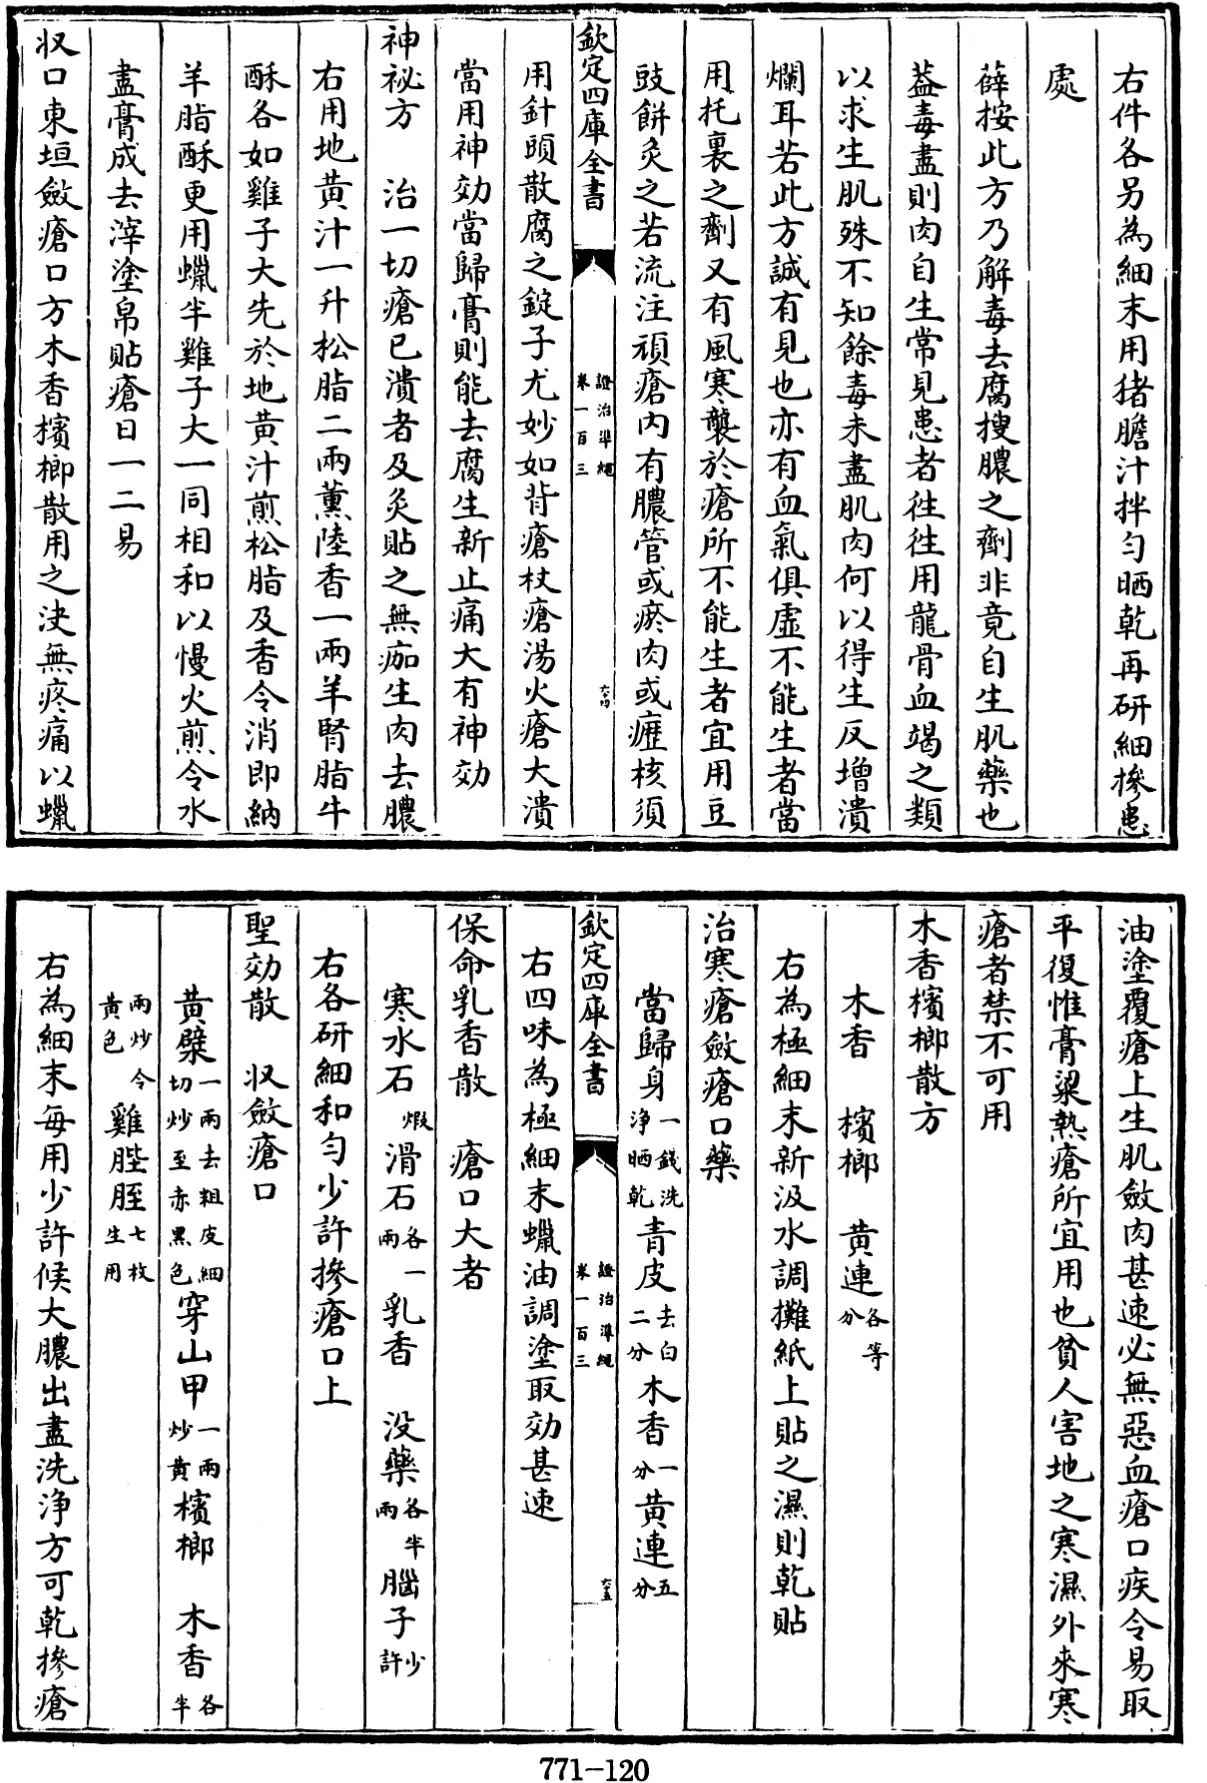 右件各另為細末用猪膽汁拌勻晒乾再研細摻患
處
薛按此方乃解毒去腐搜膿之劑非竟自生肌藥也
葢毒盡則肉自生常見患者徃徃用龍骨血竭之類
以求生肌殊不知餘毒未盡肌肉何以得生反增潰
爛耳若此方誠有見也亦有血氣俱虛不能生者當
用托裏之劑又有風寒襲於瘡所不能生者宜用豆
豉餅灸之若流注頑瘡内有膿管或瘀肉或癧核須
欽定四庫全書
證治準繩
卷一百三
用針頭散腐之錠子尤妙如背瘡杖瘡湯火瘡大潰
當用神効當歸膏則能去腐生新止痛大有神効
神祕方 治一切瘡已潰者及灸貼之無痂生肉去膿
右用地黄汁一升松脂二兩薰陸香一兩羊腎脂牛
酥各如雞子大先於地黄汁煎松脂及香令消即納
羊脂酥更用蠟半雞子大一同相和以慢火煎令水
盡膏成去滓塗帛貼瘡日一二易
收口東垣斂瘡口方木香檳榔散用之決無疼痛以蠟
油塗覆瘡上生肌斂肉甚速必無惡血瘡口疾令易取
平復惟膏粱熱瘡所宜用也貧人害地之寒濕外來寒
瘡者禁不可用
木香檳榔散方
木香 檳榔 黄連各等分
右為極細末新汲水調攤紙上貼之濕則乾貼
治寒瘡斂瘡口藥
當歸身一錢洗浄晒乾青皮去白二分木香一分黄連五分
欽定四庫全書
證治準繩
卷一百三
右四味為極細末蠟油調塗取効甚速
保命乳香散 瘡口大者
寒水石煅 滑石各一兩 乳香 没藥各半兩 腦子少許
右各研細和勻少許摻瘡口上
聖効散 收斂瘡口
黄檗一兩去粗皮細切炒至赤黑色穿山甲一兩炒黄檳榔 木香各半
兩炒令黄色 雞䏶胵七枚生用
右為細末每用少許候大膿出盡洗浄方可乾摻瘡
771-120